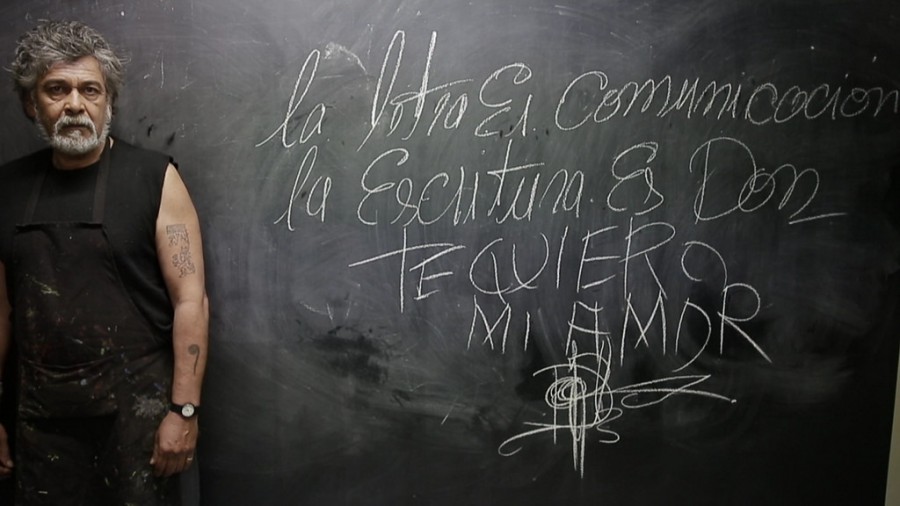 la letra Es comunicacion
la Escritura. Es Don
TE QUIERO
MI AMOR